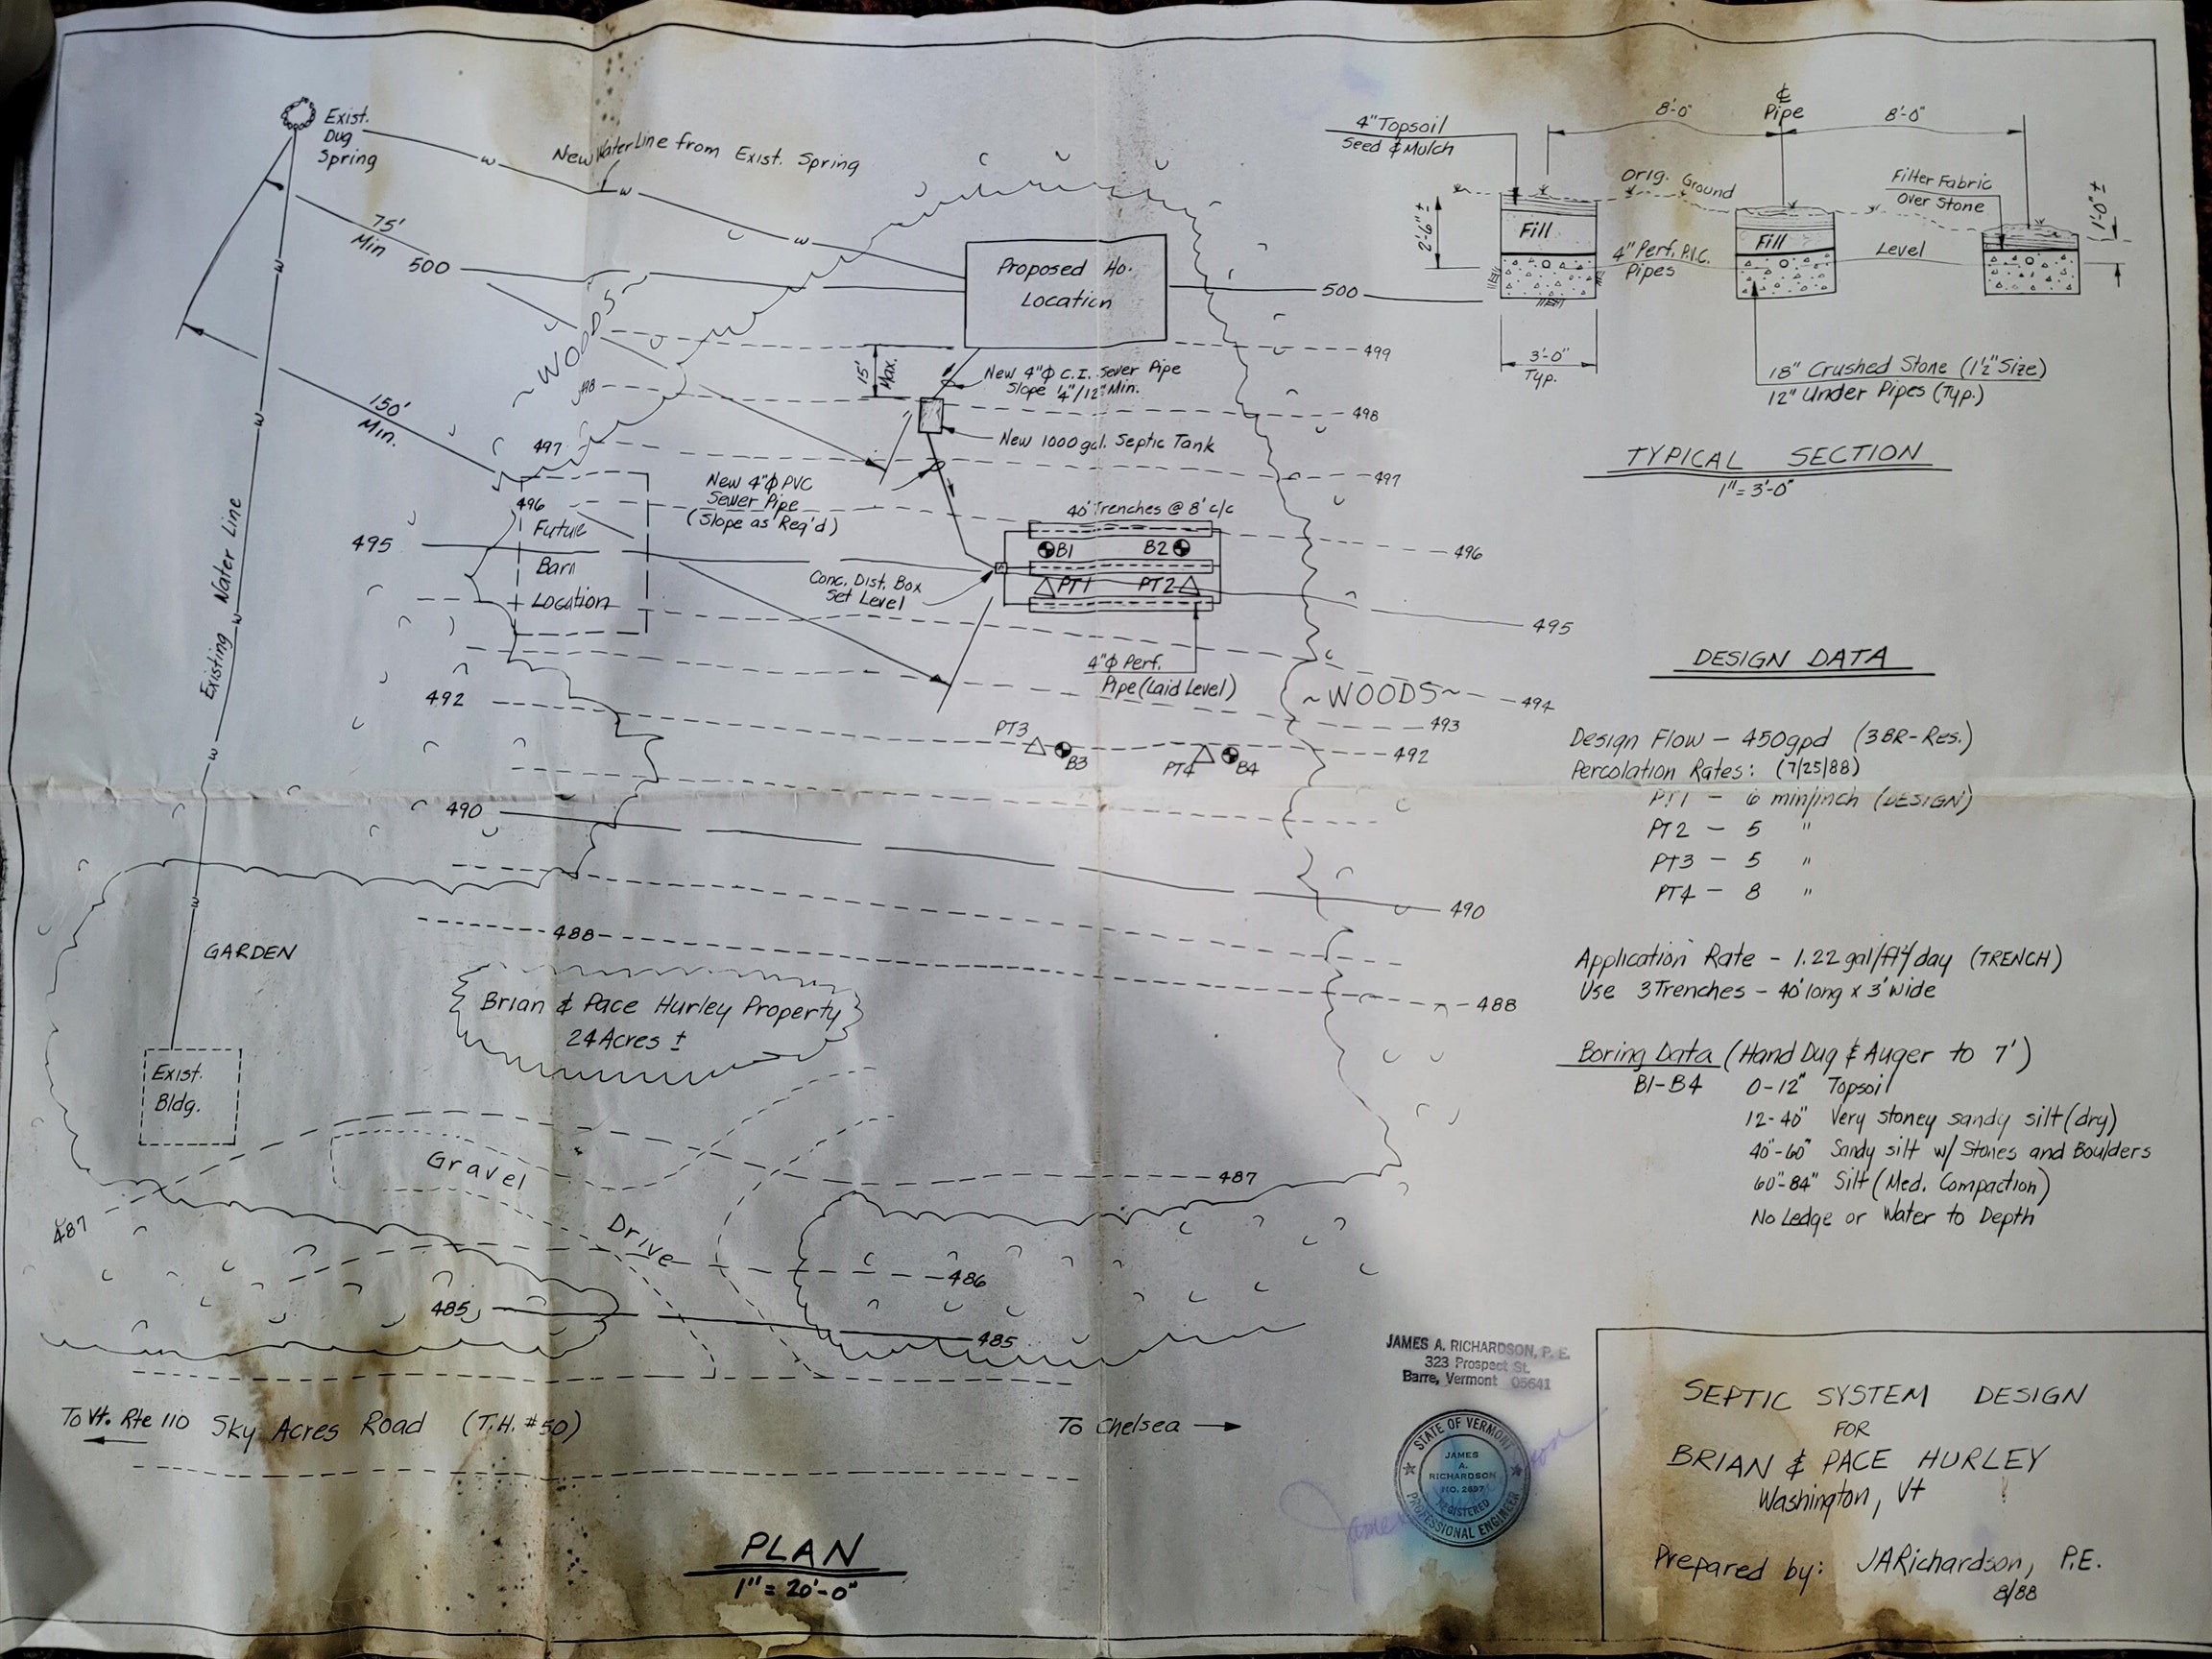 Exist.
Dug
Spring
New Water Line from Exist. Spring
75'
Min
500
~WOODS~
150'
Min.
Proposed Ho.
Location
500
499
498
498
497
497
15'
Max.
New 4"ϕ C.I. Sewer Pipe
Slope ¼"/12" Min.
New 1000 gal. Septic Tank
New 4"ϕ PVC
Sewer Pipe
(Slope as Req'd)
40' Trenches @ 8' c/c
B1
B2
PT1
PT2
Conc. Dist. Box
Set Level
4"ϕ Perf.
Pipe (Laid Level)
496
496
Future
Barn
Location
495
495
~WOODS~
494
493
492
492
PT3
B3
PT4
B4
490
490
Existing Water Line
W
W
W
W
W
W
W
W
GARDEN
488
488
Brian & Pace Hurley Property
24 Acres ±
Exist.
Bldg.
Gravel
Drive
487
487
486
485
485
To Vt. Rte 110
Sky Acres Road (T.H. #50)
To Chelsea
PLAN
1" = 20'-0"
4" Topsoil
Seed & Mulch
8'-0"
℄
Pipe
8'-0"
Orig. Ground
Filter Fabric
Over Stone
1'-0" ±
2'-6" ±
Fill
Fill
4" Perf. P.V.C.
Pipes
Level
3'-0"
Typ.
18" Crushed Stone (1½" Size)
12" Under Pipes (Typ.)
TYPICAL SECTION
1" = 3'-0"
DESIGN DATA
Design Flow - 450gpd (3BR-Res.)
Percolation Rates: (7/25/88)
PT1 - 6 min/inch (DESIGN)
PT2 - 5 "
PT3 - 5 "
PT4 - 8 "
Application Rate - 1.22 gal/ft²/day (TRENCH)
Use 3 Trenches - 40' long x 3' wide
Boring Data (Hand Dug & Auger to 7')
B1-B4 0-12" Topsoil
12-40" Very stoney sandy silt (dry)
40"-60" Sandy silt w/ Stones and Boulders
60"-84" Silt (Med. Compaction)
No Ledge or Water to Depth
JAMES A. RICHARDSON, P. E.
323 Prospect St.
Barre, Vermont 05641
STATE OF VERMONT
JAMES
A.
RICHARDSON
NO. 2637
REGISTERED
PROFESSIONAL ENGINEER
SEPTIC SYSTEM DESIGN
FOR
BRIAN & PACE HURLEY
Washington, Vt
Prepared by: JARichardson, P.E.
8/88